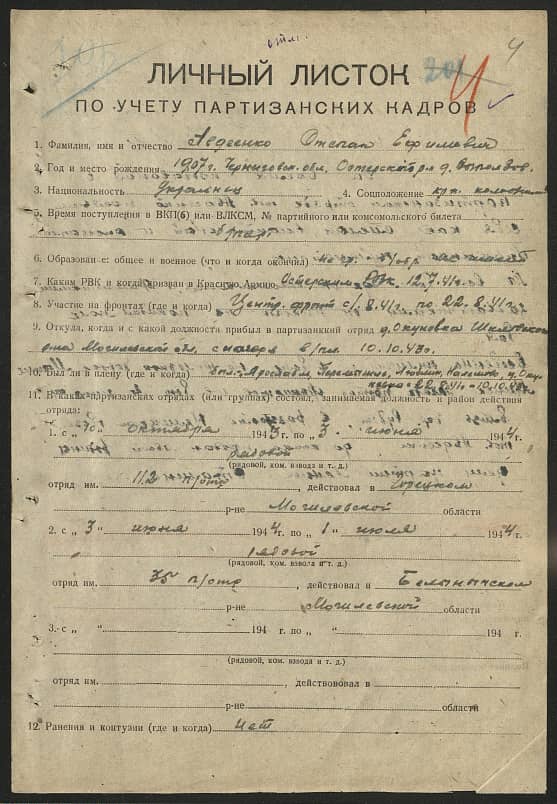 ЛИЧНЫЙ ЛИСТОК
ПО УЧЕТУ ПАРТИЗАНСКИХ КАДРОВ
1. Фамилия, имя и отчество Авдеенко Степан Ефимович
2. Год и место рождения 1907 г. Черниговск. обл, Остерский р-н д.
3. Национальность украинец 4. Соцположение кр-н.
5. Время поступления в ВКП(б) или ВЛКСМ, № партийного или комсомольского билета
6. Образование: общее и военное (что и когда окончил)
7. Каким РВК и когда призван в Красную Армию Остерским РВК. 12.7.41 г.
8. Участие на фронтах (где и когда) Центр. фронт с/ 8.41 г. по 22.8.41 г.
9. Откуда, когда и с какой должности прибыл в партизанский отряд д.
р-на Могилевской обл. с лагеря в/пл. 10.10.43 г.
10. Был ли в плену (где и когда)
22.8.41 г. - 10.10.43 г.
11. В каких партизанских отрядах (или группах) состоял, занимаемая должность и район действия
отряда:
1. с „10 октября 1943 г. по „3 июня 1944 г.
рядовой
(рядовой, ком. взвода и т. д.)
отряд им. 112 п/отр , действовал в Горецком
р-не Могилевской области
2. с „3 июня 1944 г. по „1 июля 1944 г.
рядовой
(рядовой, ком. взвода и т. д.)
отряд им. 35 п/отр , действовал в Белыничском
р-не Могилевской области
3. с „ “ 194 г. по „ “ 194 г.
(рядовой, ком. взвода и т. д.)
отряд им. , действовал в
р-не области
12. Ранения и контузии (где и когда) Нет